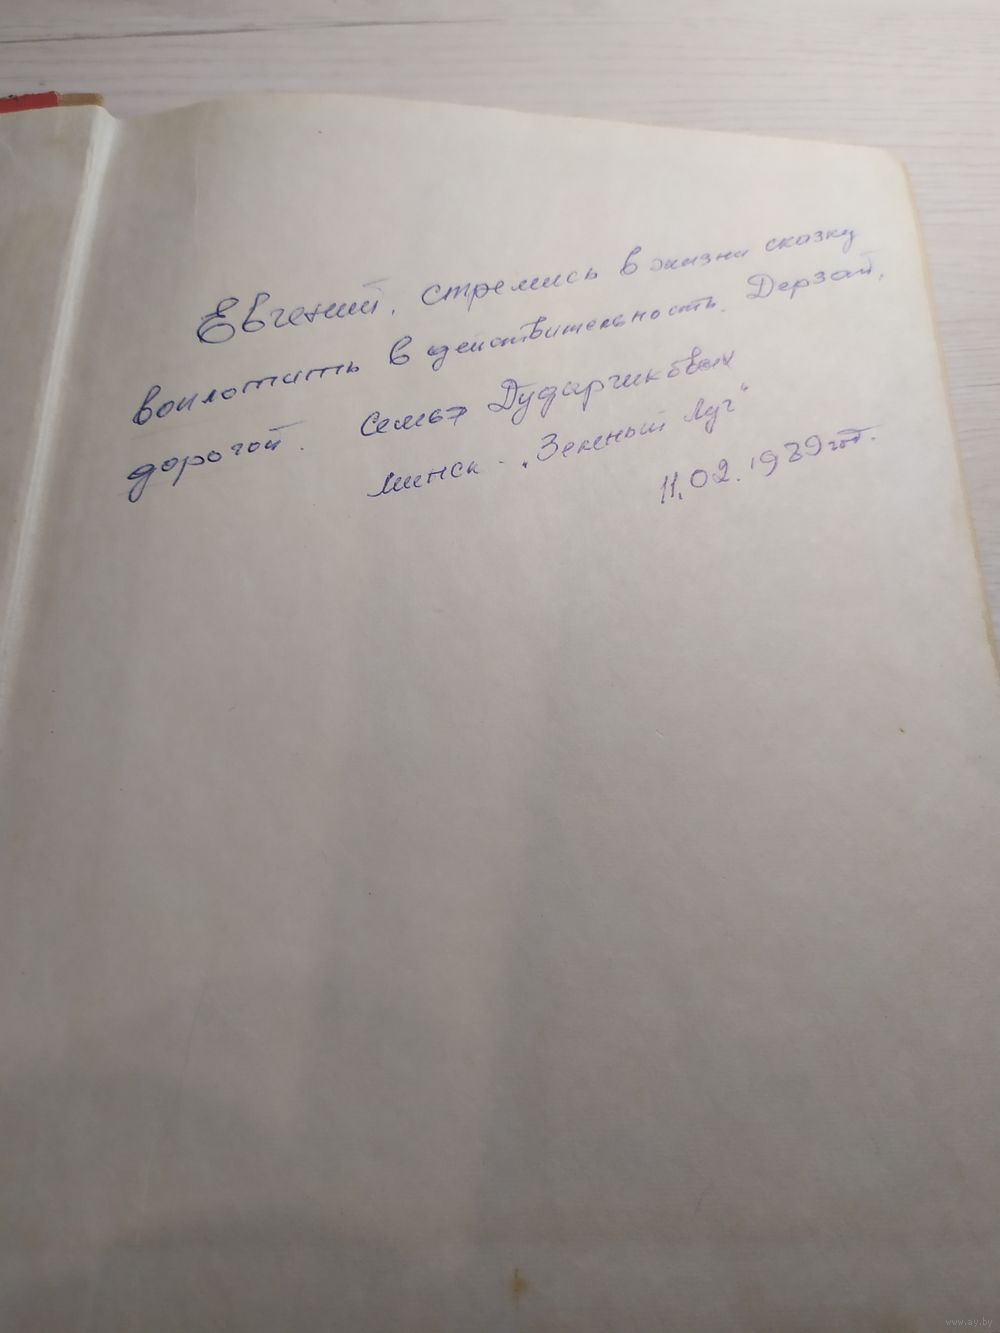 Евгений, стремись в жизни сказку
воплотить в действительность. Дерзай,
дорогой. Семья Дударчиковых
Минск - „Зеленый Луг"
11.02.1989 год.
www.ay.by